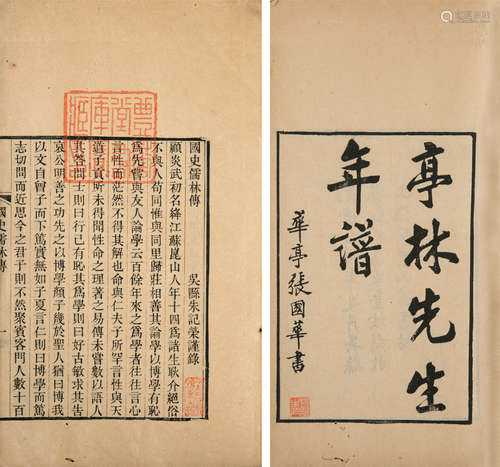 亭林先生
年譜
華亭張國華書
國史儒林傳
吳縣朱記榮謹錄
顧炎武初名絳江蘇崑山人年十四爲諸生耿介絕俗
不與人苟同惟與同里歸莊相善其論學以博學有恥
爲先嘗與友人論學云百餘年來之爲學者往往言心
言性而茫然不得其解也命與仁夫子所罕言性與天
道子貢所未得聞性命之理著之易傳未嘗數以語人
其答問士則曰行己有恥其爲學則曰好古敏求其告
哀公明善之功先之以博學顏子幾於聖人猶曰博我
以文自曾子而下篤實無如子夏言仁則曰博學而篤
志切問而近思今之君子則不然聚賓客門人數十百
國史儒林傳
一